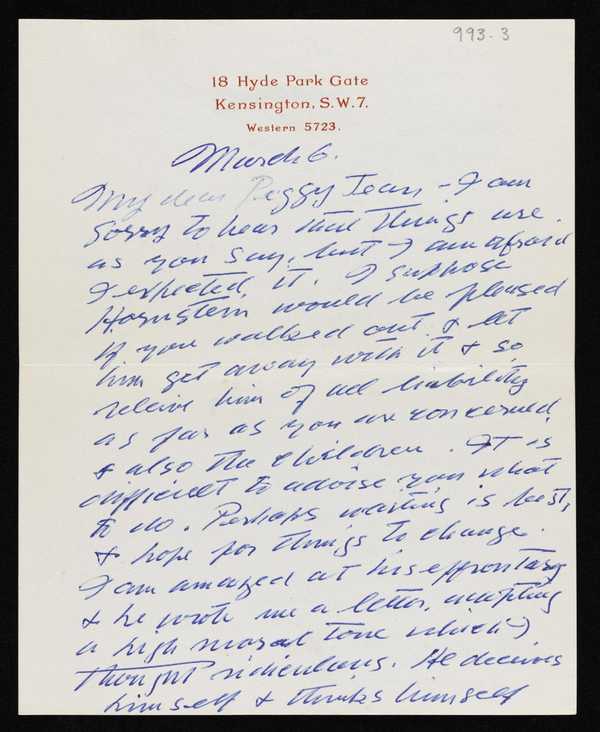 993.3
18 Hyde Park Gate
Kensington, S.W.7.
Western 5723.
March 6.
My dear Peggy Jean – I am
sorry to hear that things are
as you say, but I am afraid
I expected it. I suppose
Hornstein would be pleased
if you walked out & let
him get away with it & so
relieve him of all liability
as far as you are concerned,
& also the children. It is
difficult to advise you what
to do. Perhaps waiting is best,
& hope for things to change.
I am amazed at his effrontary
& he wrote me a letter, adopting
a high moral tone which I
thought ridiculous. He deceives
himself & thinks himself